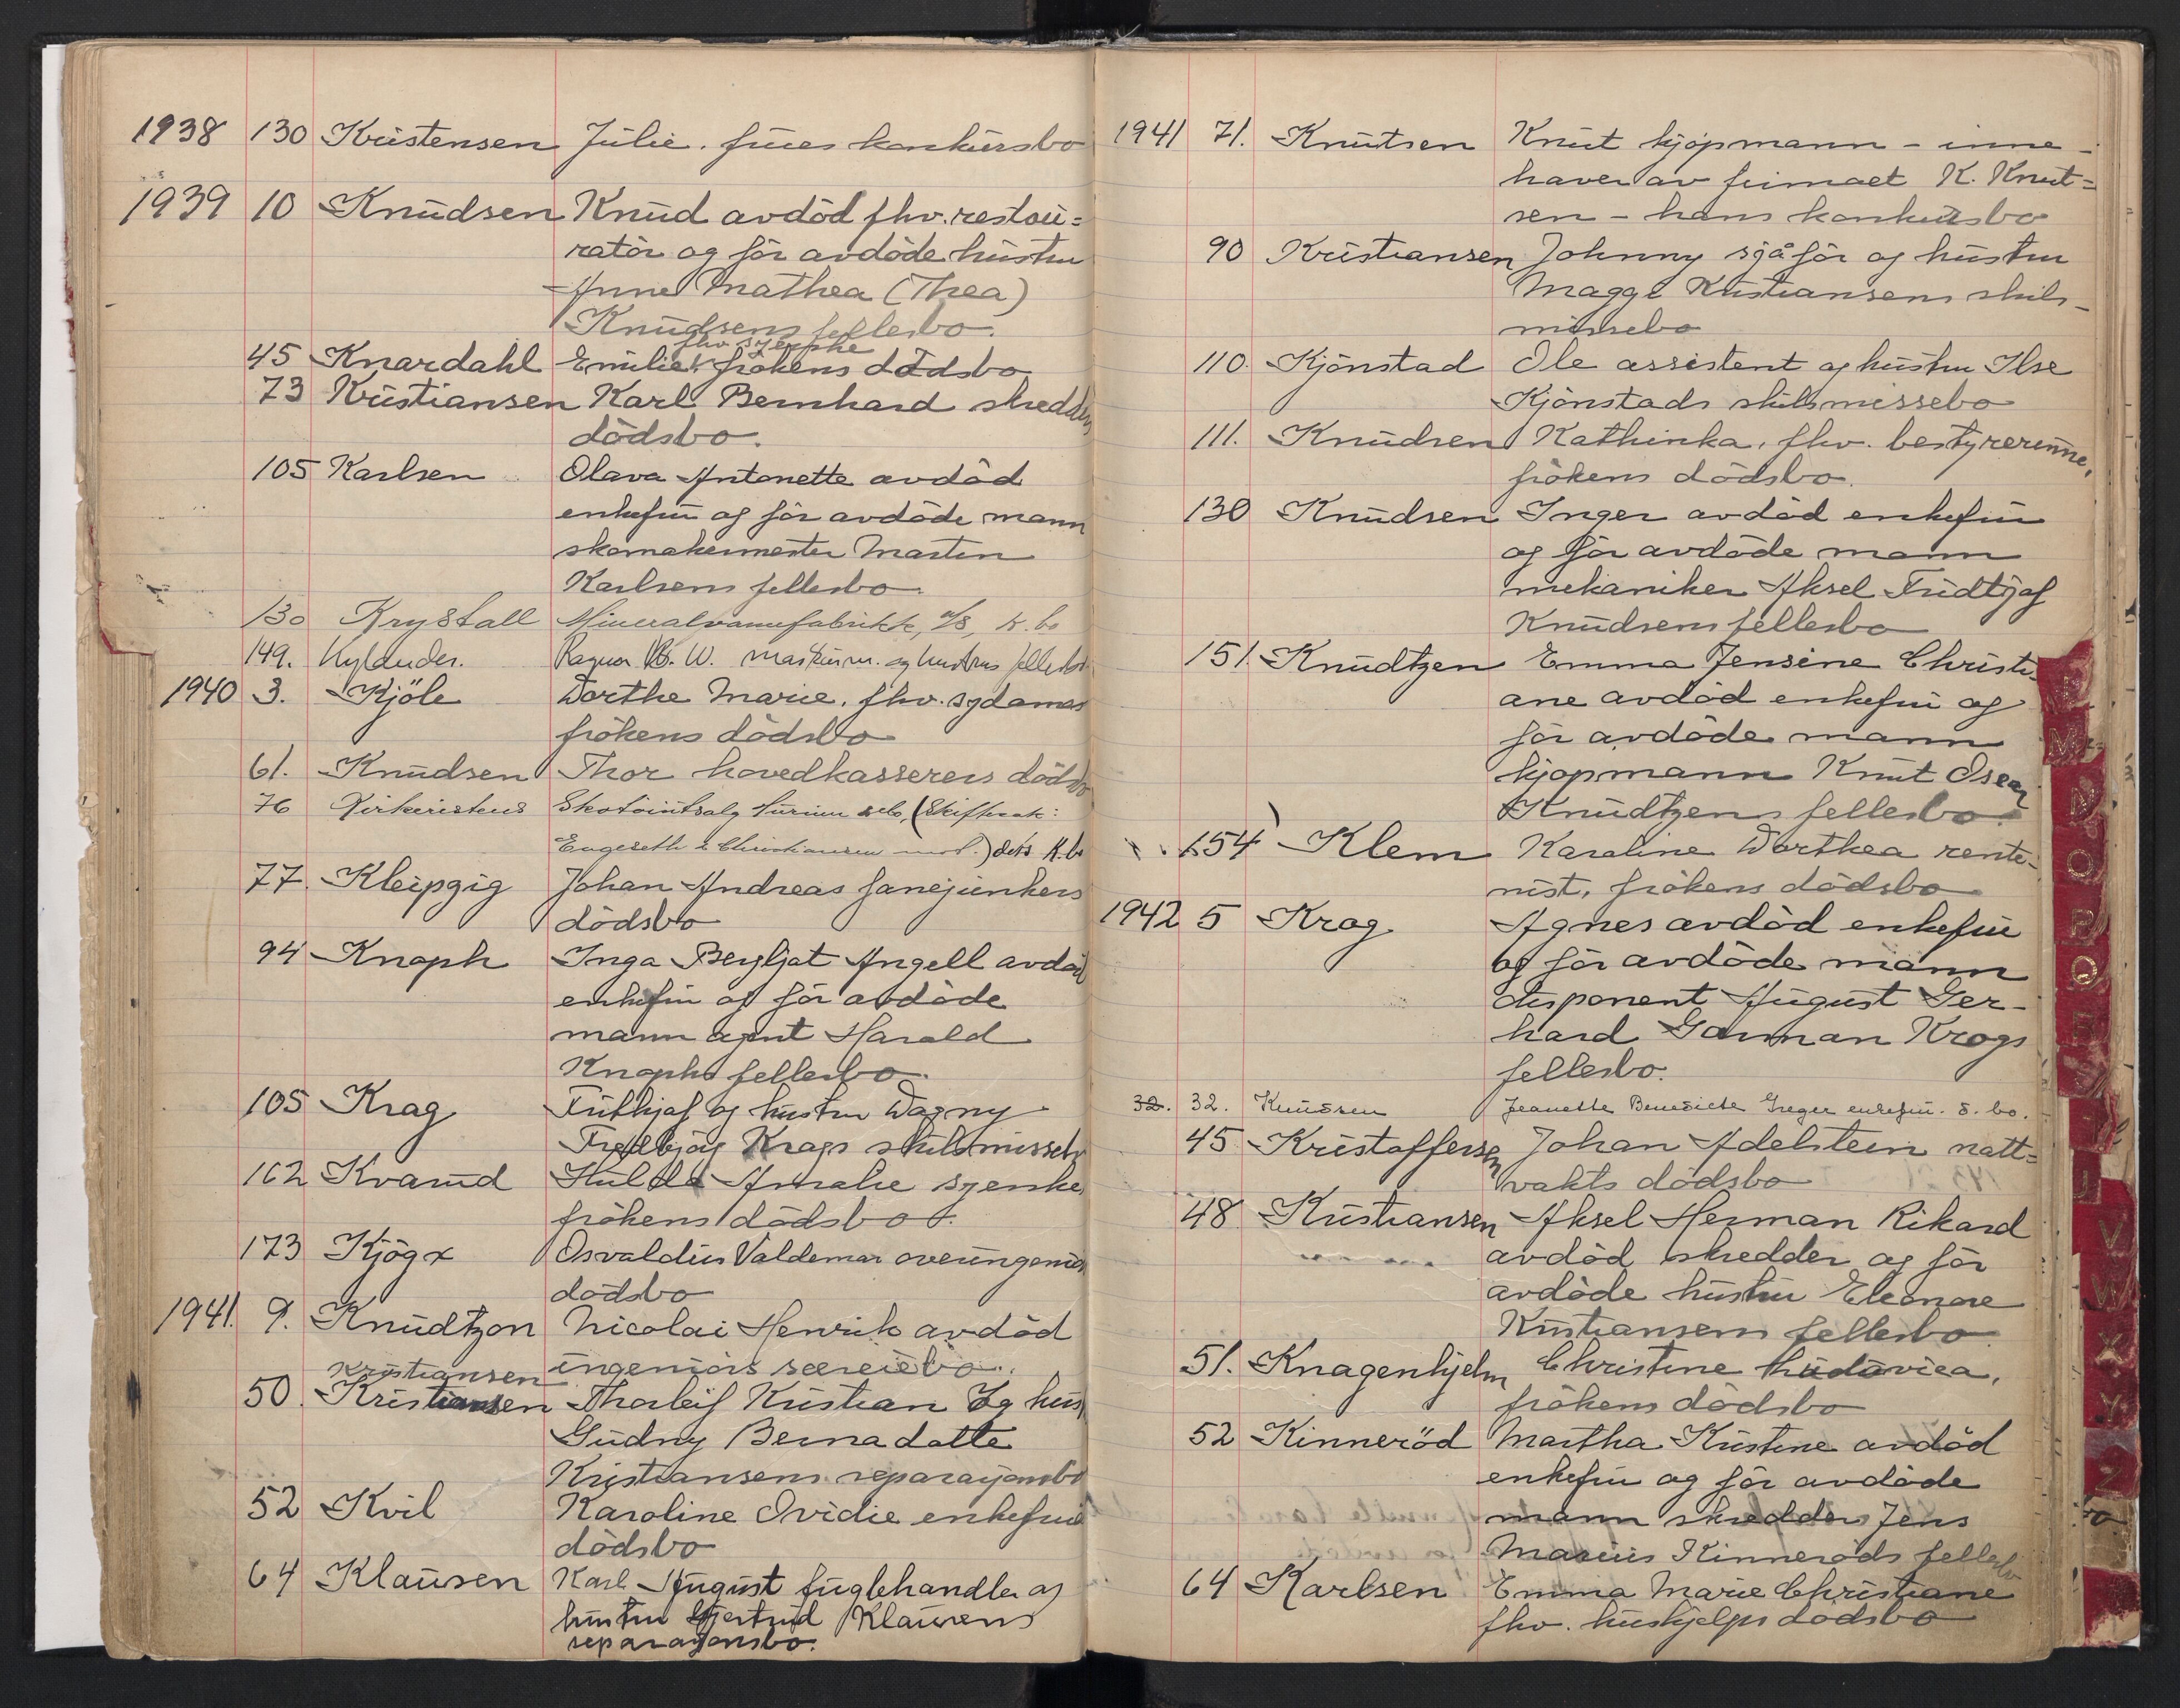 1938 130 Kristensen Julie. frues konkursbo
1939 10 Knudsen Knud avdöd fhv. restau=
ratör og för avdöde hustru
Anne Mathea (Thea)
Knudsens fellesbo.
fhv syerske
45 Knardahl Emilie frökens dödsbo
73 Kristiansen Karl Bernhard skredders
dödsbo.
105 Karlsen Olava Antonette avdöd
enkefru og för avdöde mann
skomakermester Martin
Karlsens fellesbo
130 Krystall Mineralvannfabrikk, A/S, k. bo
149. Kylander. Ragnar B. W. maskinm. og hustrus fellesbo
1940 3. Kjöle Dorthe Marie. fhv. sydames
frökens dödsbo
61. Knudsen Thor hovedkasserers dödsbo
76 Kirkeristens Skotöiutsalg
Engeseth & Christiansen ) dets K. bo
77. Kleipzig Johan Andreas fanejunkers
dödsbo
94 Knoph Inga Bergljot Angell avdöd
enkefru og för avdöde
mann agent Harald
Knophs fellesbo
105 Krag Frithjof og hustru Dagny
Krags skilsmissebo
162 Kvarud Hulda Amalie syerske
frökens dödsbo.
173 Kjög x Osvaldus Valdemar overingeniör
dödsbo
1941. 9. Knudtzon Nicolai Henrik avdöd
ingeniörs særeiebo.
Kristiansen
50. Kristiansen Thorleif Kristian og hus
Gudny Bernadotte
Kristiansens separasjonsbo
52 Kvil Karoline Ovidie enkefrus
dödsbo
64 Klausen Karl August fuglehandler og
hustru Gjertrud Klausens
separasjonsbo.
1941 71. Knutsen Knut kjöpmann - inne-
haver av firmaet K. Knut=
sen - hans konkursbo
90 Kristiansen Johnny sjåför og hustru
Maggi Kristiansens skils-
missebo
110. Kjönstad Ole assistent og hustru Ilse
Kjönstads skilsmissebo
111. Knudsen Kathinka, fhv. bestyrerinne,
frökens dödsbo.
130 Knudsen Inger avdöd enkefru
og för avdöde mann
mekaniker Aksel Fridtjof
Knudsens fellesbo
151. Knudtzen Emma Jensine Christi-
ane avdöd enkefru og
för avdöde mann
kjöpmann Knut Osear
Knudtzens fellesbo
154 Klem Karoline Dorthea rente-
nist, frökens dödsbo
1942 5 Krag Agnes avdöd enkefru
og för avdöde mann
disponent August Ger-
hard Garman Krags
fellesbo.
32. 32. Knudsen Jeanette Benedicte Greger enkefru. d. bo.
45 Kristoffersen Johan Adelsteen natt=
vakts dödsbo
48 Kristiansen Aksel Herman Rikard
avdöd skredder og för
avdöde hustru Eleonore
Kristiansens fellesbo
51. Knagenhjelm Christine Ludovica,
frökens dödsbo
52 Kinneröd Martha Kristine avdöd
enkefru og för avdöde
mann skredder Jens
Marius Kinneröds fellesbo
64 Karlsen Emma Marie Christiane
fhv. hushjelps dödsbo
M
N
O
P
Q
R
S
T
U
V
W
X
Y
Z